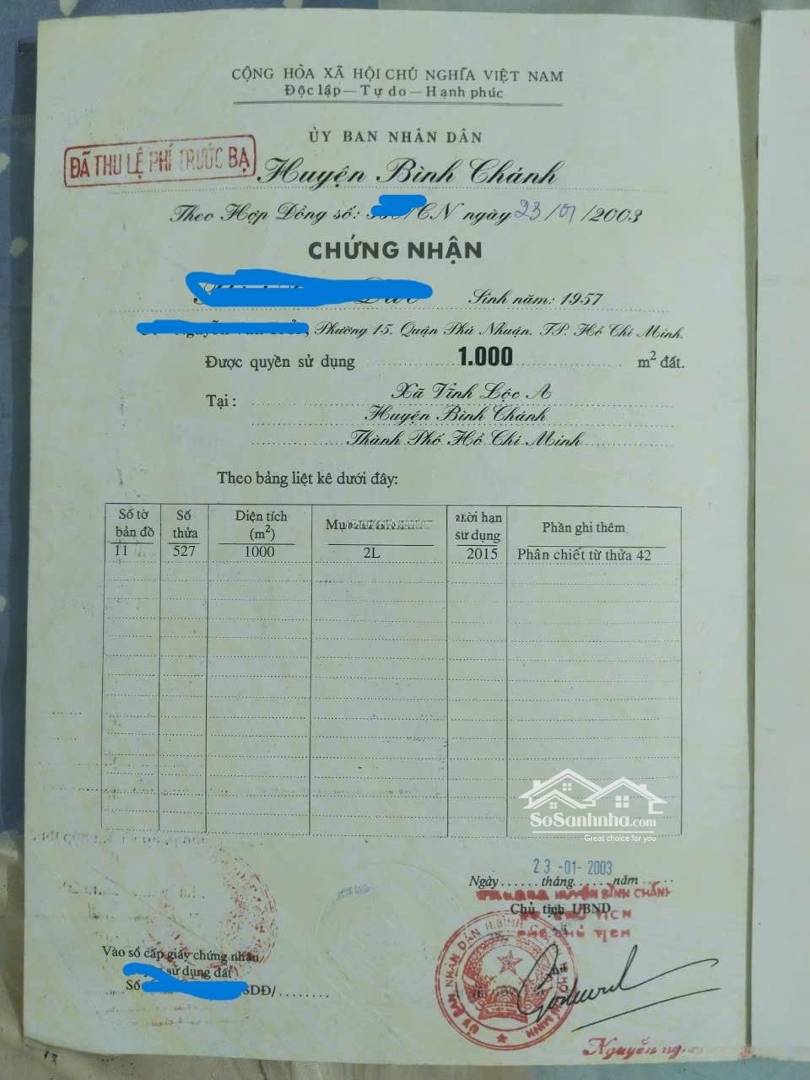 CỘNG HÒA XÃ HỘI CHỦ NGHĨA VIỆT NAM
Độc lập — Tự do — Hạnh phúc
ỦY BAN NHÂN DÂN
ĐÃ THU LỆ PHÍ TRƯỚC BẠ
Huyện Bình Chánh
Theo Hợp Đồng số: /CN ngày 23/01/2003
CHỨNG NHẬN
Sinh năm: 1957
Phường 15. Quận Phú Nhuận. TP. Hồ Chí Minh.
Được quyền sử dụng 1.000 m² đất.
Tại: Xã Vĩnh Lộc A
Huyện Bình Chánh
Thành Phố Hồ Chí Minh
Theo bảng liệt kê dưới đây:
Số tờ bản đồ Số thửa Diện tích (m²) Thời hạn sử dụng Phần ghi thêm
11 527 1000 2L 2015 Phân chiết từ thửa 42
SoSanhnha.com
Great choice for you
23 -01- 2003
Ngày ...... tháng ...... năm ......
BÌNH CHÁNH
Chủ tịch UBND
CHỦ TỊCH
Vào sổ cấp giấy chứng nhận
sử dụng đất
Số SDĐ/........
Nguyễn